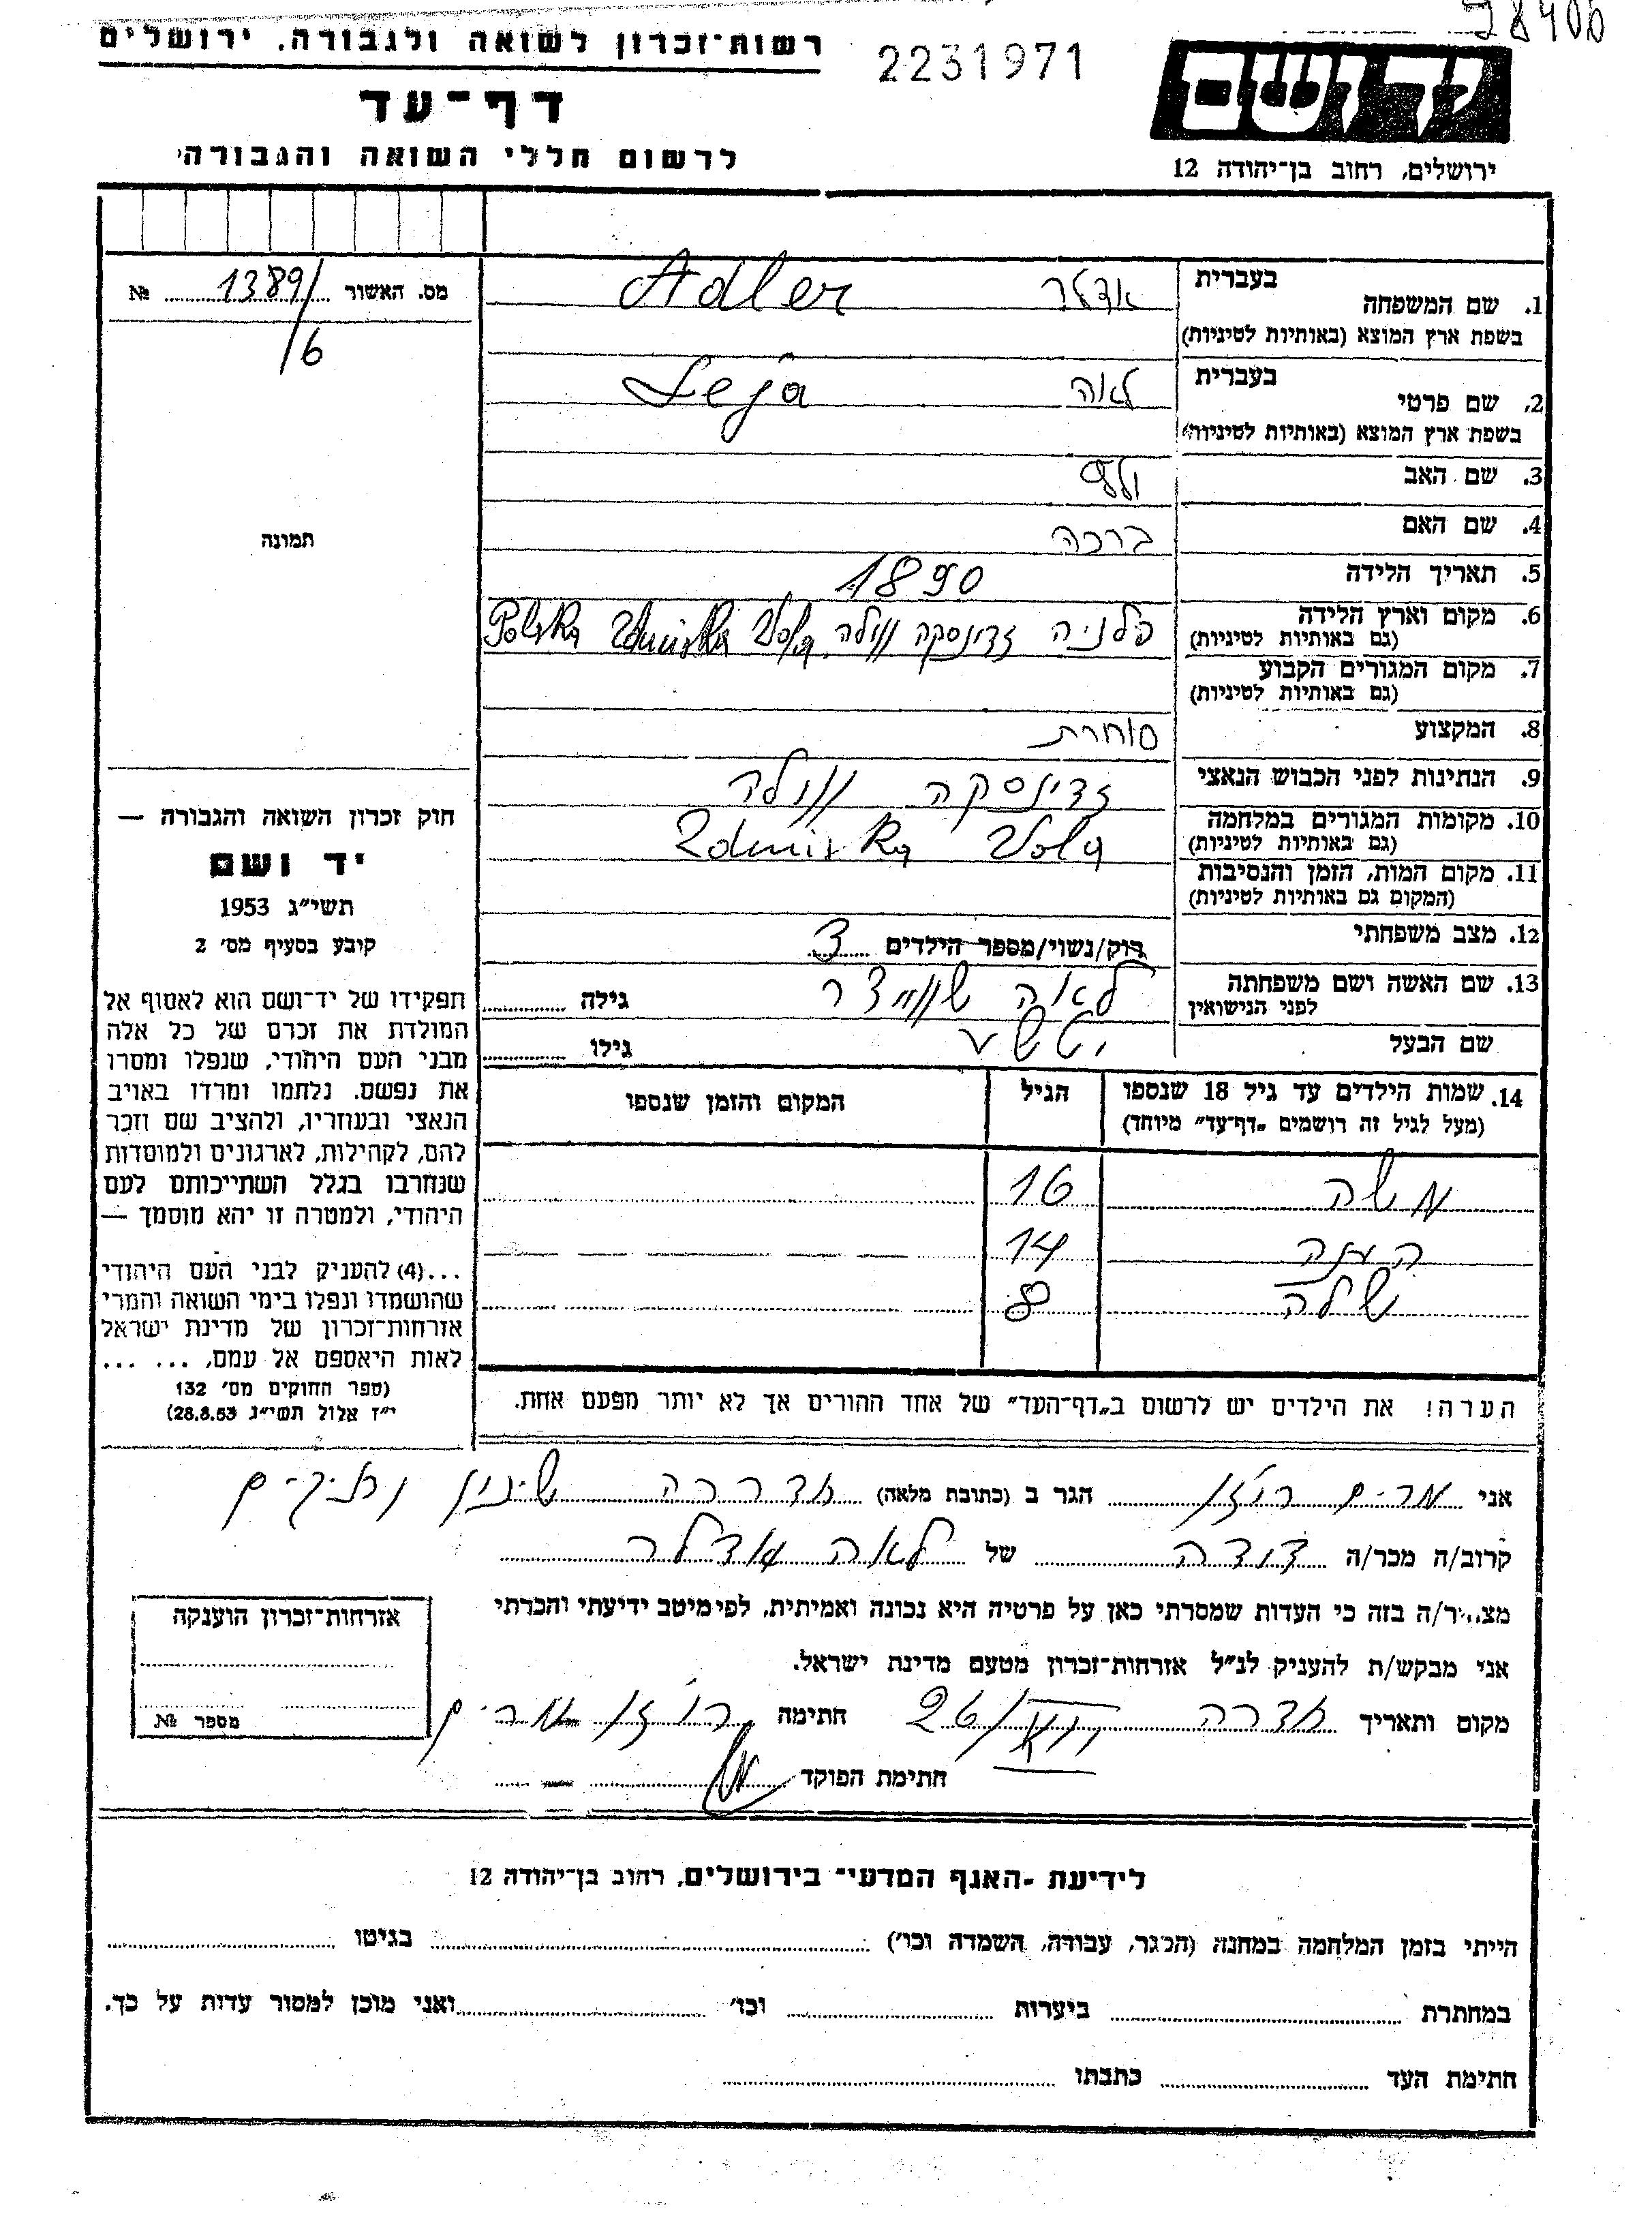 28406
רשות־זכרון לשואה ולגבורה, ירושלים
2231971
יד ושם
דף־עד
לרשום חללי השואה והגבורה
ירושלים, רחוב בן־יהודה 12
מס. האשור 1389/ №
/6
תמונה
1. שם המשפחה בעברית אדלר Adler
בשפת ארץ המוצא (באותיות לטיניות)
2. שם פרטי בעברית לאה Leja
בשפת ארץ המוצא (באותיות לטיניות)
3. שם האב וולף
4. שם האם ברכה
5. תאריך הלידה 1890
6. מקום וארץ הלידה פלניה זדונסקה וולה Zdunska Vola Polska
(גם באותיות לטיניות)
7. מקום המגורים הקבוע
(גם באותיות לטיניות)
8. המקצוע סוחרת
9. הנתינות לפני הכבוש הנאצי
זדונסקה וולה
10. מקומות המגורים במלחמה Zdunska Vola
(גם באותיות לטיניות)
11. מקום המות, הזמן והנסיבות
(המקום גם באותיות לטיניות)
12. מצב משפחתי רוק/נשוי/מספר הילדים 3
13. שם האשה ושם משפחתה לאה גילה
לפני הנישואין
שם הבעל גילו
14. שמות הילדים עד גיל 18 שנספו הגיל המקום והזמן שנספו
(מעל לגיל זה רושמים "דף־עד" מיוחד)
משה 16
14
שלה 8
הערה! את הילדים יש לרשום ב"דף־העד" של אחד ההורים אך לא יותר מפעם אחת.
חוק זכרון השואה והגבורה —
יד ושם
תשי"ג 1953
קובע בסעיף מס' 2
תפקידו של יד־ושם הוא לאסוף אל
המולדת את זכרם של כל אלה
מבני העם היהודי, שנפלו ומסרו
את נפשם, נלחמו ומרדו באויב
הנאצי ובעוזריו, ולהציב שם וזכר
להם, לקהילות, לארגונים ולמוסדות
שנחרבו בגלל השתייכותם לעם
היהודי, ולמטרה זו יהא מוסמך —
...(4) להעניק לבני העם היהודי
שהושמדו ונפלו בימי השואה והמרי
אזרחות־זכרון של מדינת ישראל
לאות היאספם אל עמם, ... ...
(ספר החוקים מס' 132
י"ז אלול תשי"ג 28.8.53)
אני מרים רוזן הגר ב (כתובת מלאה) חדרה שיכון ותיקים
קרוב/ה מכר/ה דודה של לאה אדלר
מצהיר/ה בזה כי העדות שמסרתי כאן על פרטיה היא נכונה ואמיתית, לפי מיטב ידיעתי והכרתי
אני מבקש/ת להעניק לנ"ל אזרחות־זכרון מטעם מדינת ישראל.
מקום ותאריך חדרה 26/ חתימה רוזן מרים
חתימת הפוקד
אזרחות־זכרון הוענקה
מספר №
לידיעת "האגף המדעי" בירושלים, רחוב בן־יהודה 12
הייתי בזמן המלחמה במחנה (הכגר, עבודה, השמדה וכו') בגיטו
במחתרת ביערות וכו' ואני מוכן למסור עדות על כך.
חתימת העד כתבתו